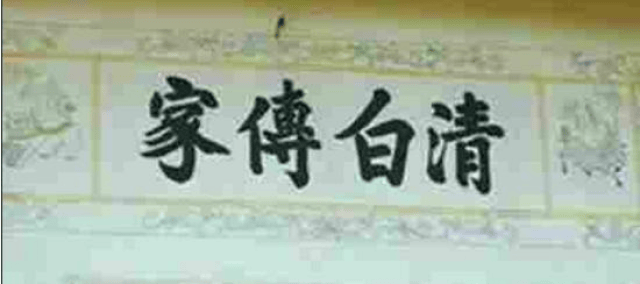 清白傳家